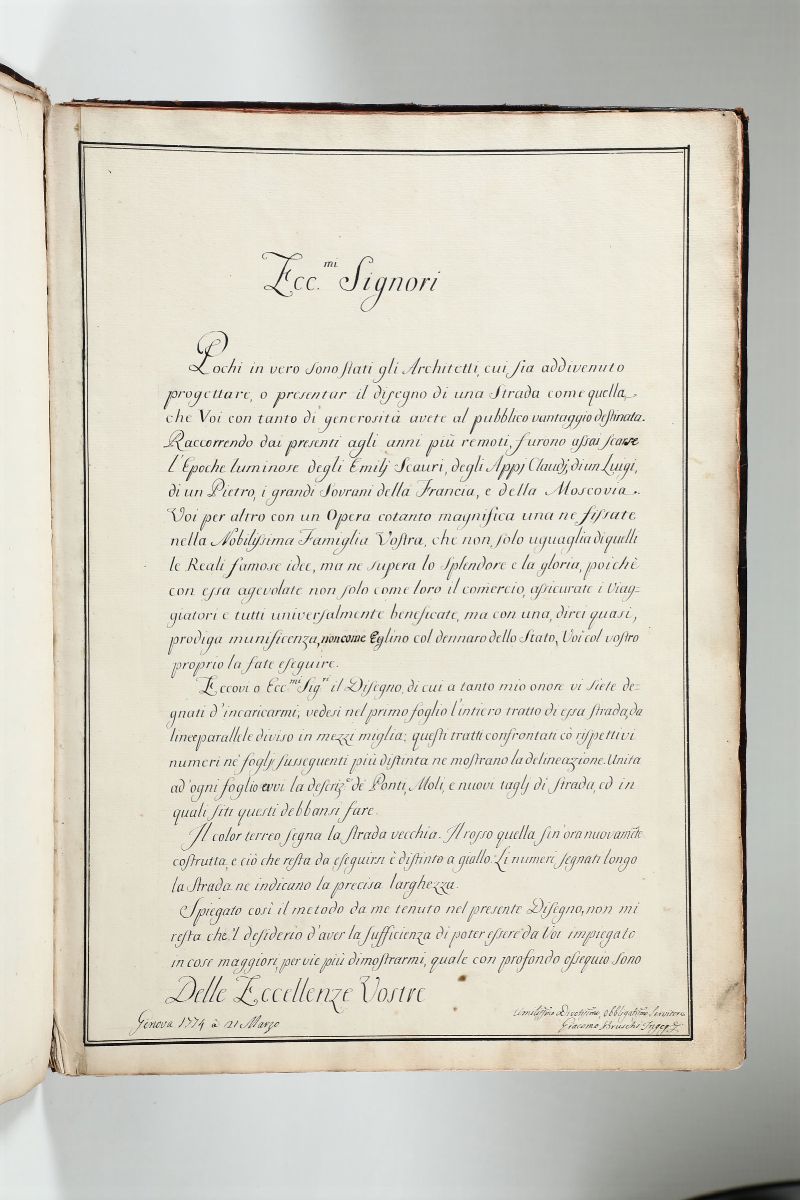 Ecc.mi Signori
Pochi in vero sono stati gli Architetti, cui sia addivenuto
progettare, o presentar il disegno di una Strada come quella,
che Voi con tanto di generosità avete al pubblico vantaggio destinata.
Raccorrendo dai presenti agli anni più remoti, furono assai scarse
l'Epoche luminose degli Emilj Scauri, degli Appj Claudj, di un Luigi,
di un Pietro, i grandi Sovrani della Francia, e della Moscovia.
Voi per altro con un Opera cotanto magnifica una ne fissate
nella Nobilissima Famiglia Vostra, che non solo uguaglia di quelli
le Reali famose idee, ma ne supera lo splendore e la gloria, poichè
con essa agevolate non solo come loro il comercio, assicurate i Viag-
giatori e tutti universalmente beneficate, ma con una, direi quasi,
prodiga munificenza, non come Eglino col dennaro dello Stato, Voi col vostro
proprio la fate eseguire.
Eccovi o Ecc.mi Sig.ri il Disegno, di cui a tanto mio onore vi siete de-
gnati d'incaricarmi; vedesi nel primo foglio l'intiero tratto di essa strada, da
linee parallele diviso in mezzi miglia; questi tratti confrontati cò rispettivi
numeri nè foglj susseguenti più distinta ne mostrano la delineazione. Unita
ad'ogni foglio evvi la descriz.e de Ponti, Moli, e nuovi taglj di strada, ed in
quali siti questi debbansi fare.
Il color terreo segna la strada vecchia. Il rosso quella sin'ora nuovamte
costrutta, e ciò che resta da eseguirsi è distinto a giallo. Li numeri segnati longo
la Strada ne indicano la precisa larghezza.
Spiegato così il metodo da me tenuto nel presente Disegno, non mi
resta che 'l desiderio d'aver la sufficienza di poter essere da Voi impiegato
in cose maggiori, per vie più dimostrarmi, quale con profondo ossequio sono
Delle Eccellenze Vostre
Genova 1774 à 21 Marzo
Umilissimo Divotissimo, obbligatissimo Servitore
Giacomo Bruschi Ingeg.